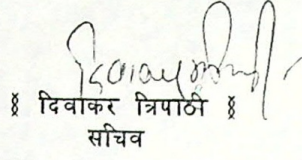 दिवाकर त्रिपाठी
सचिव